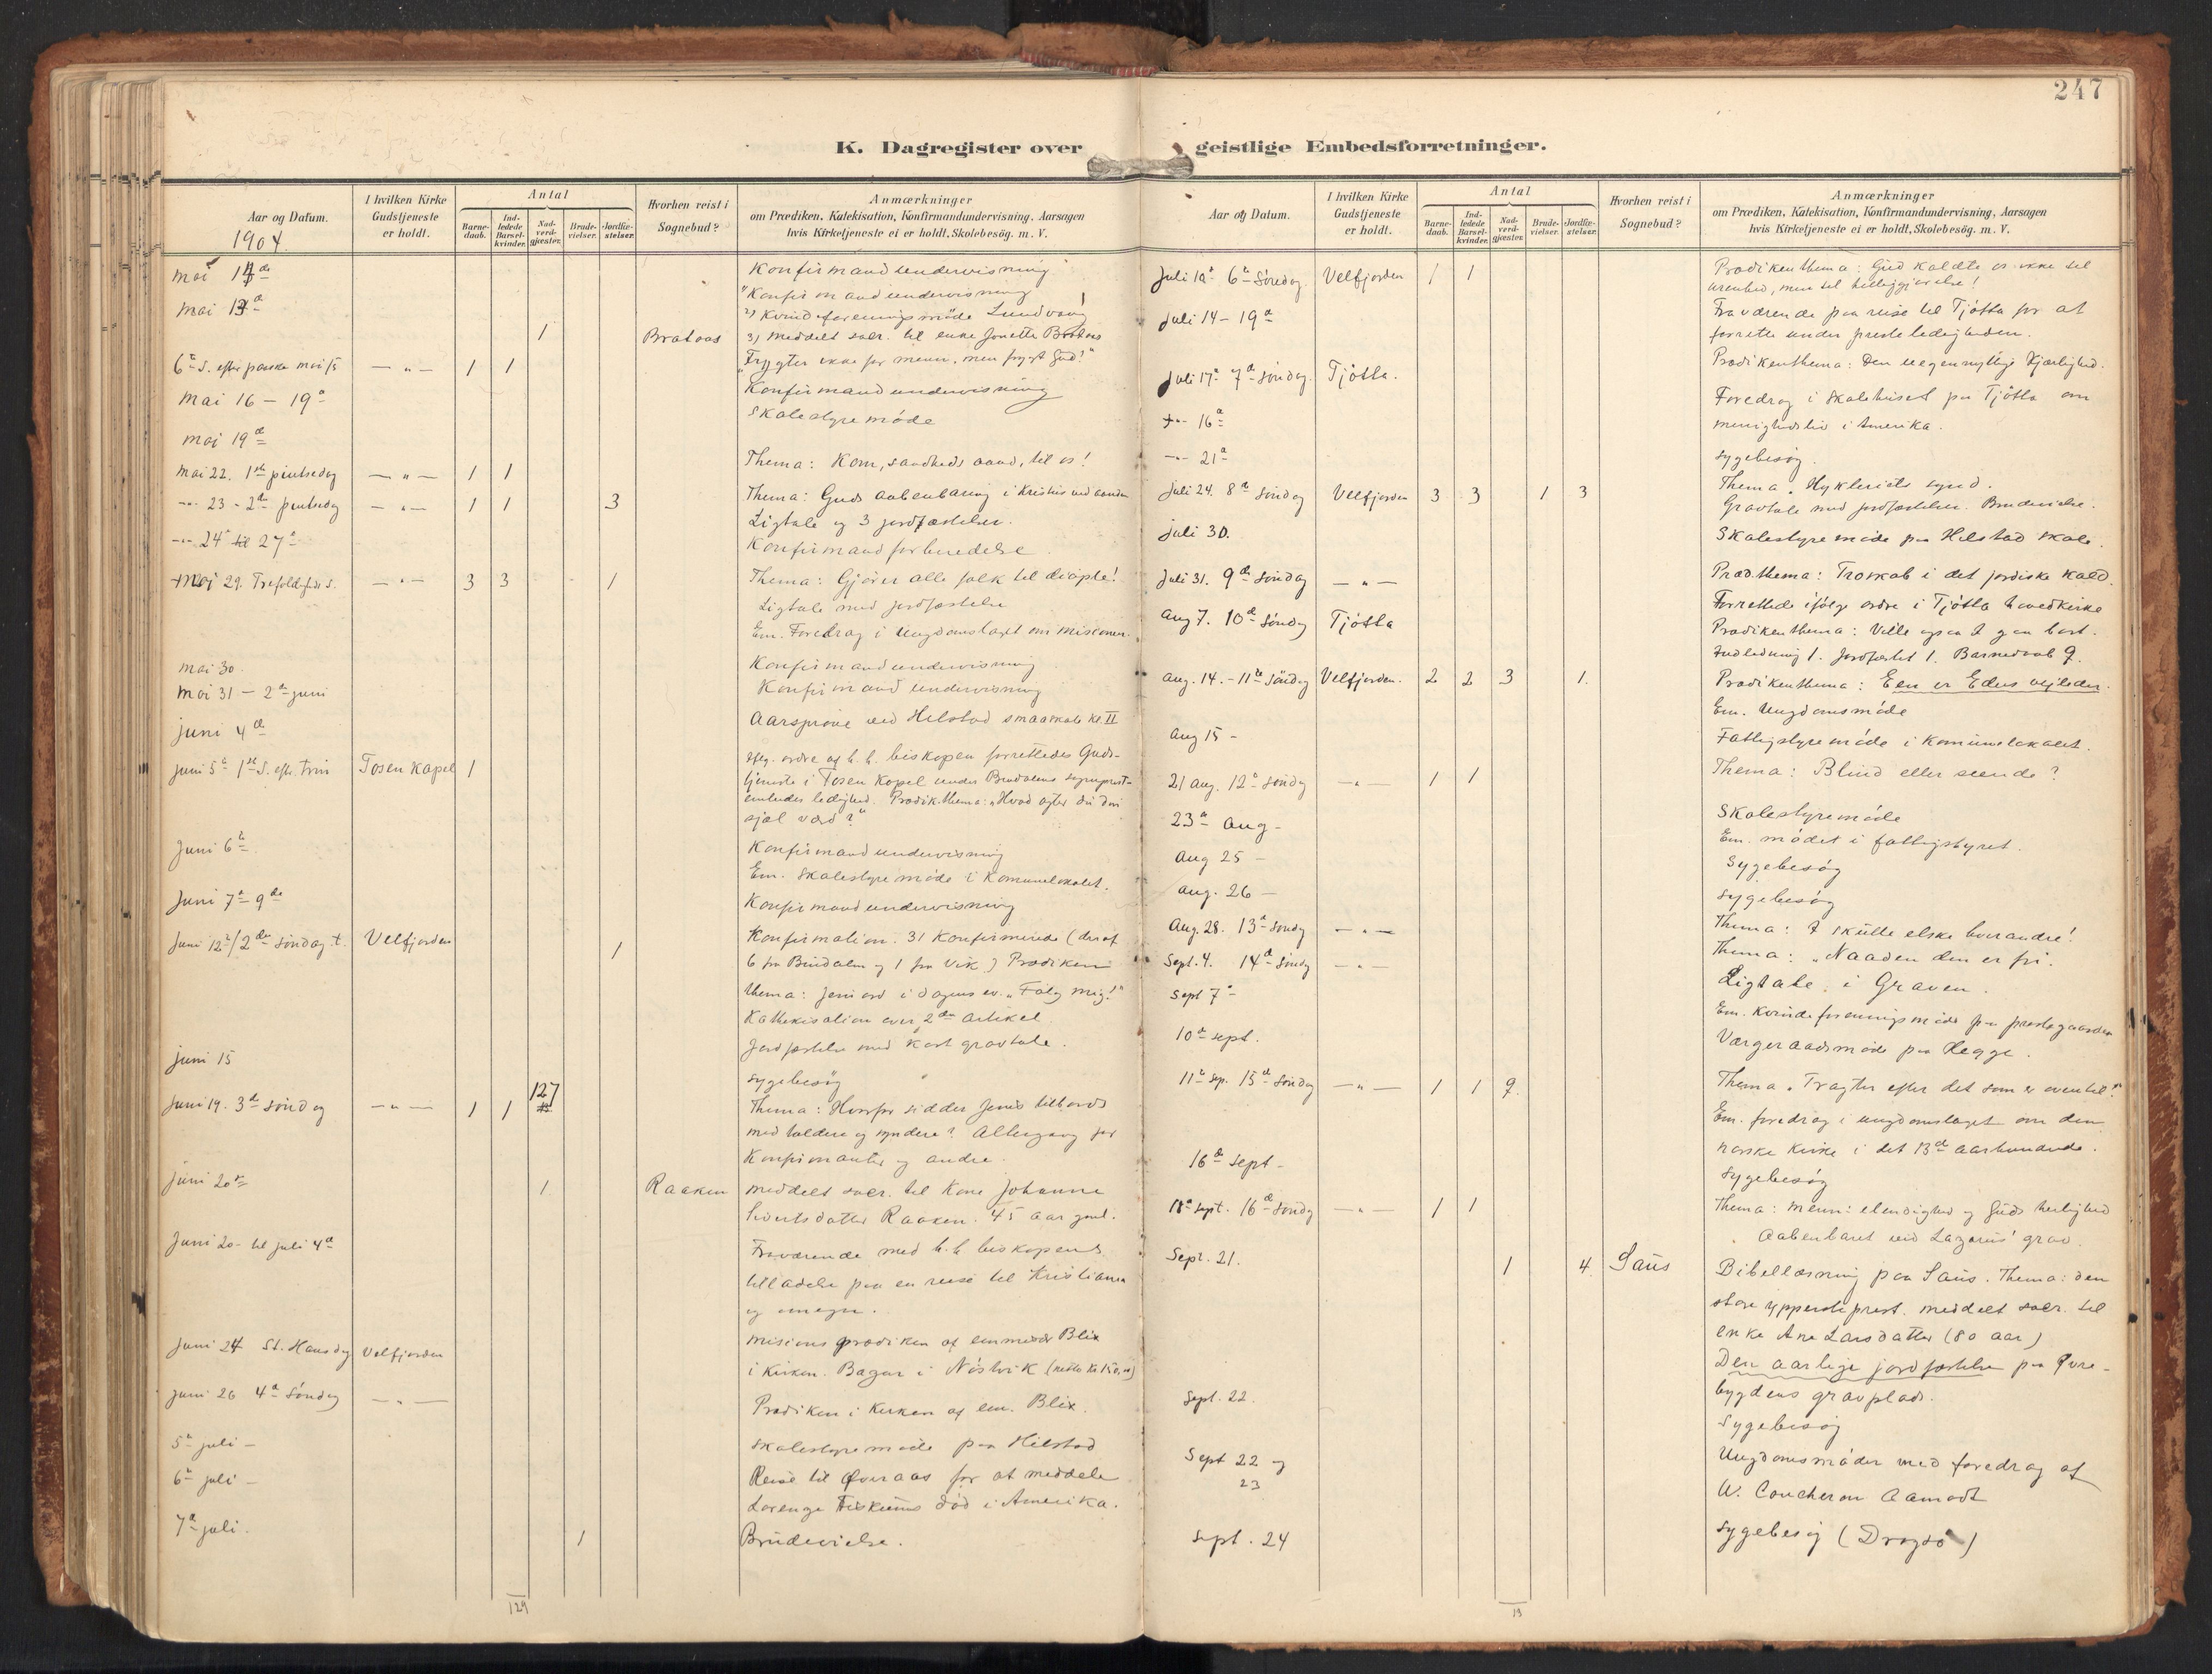 247
K. Dagregister over geistlige Embedsforretninger.
Aar og Datum.
I hvilken Kirke Gudstjeneste er holdt.
Antal
Barne-daab.
Ind-ledede Barsel-kvinder.
Nad-verd-gjæster.
Brude-vielser.
Jordfæ-stelser.
Hvorhen reist i Sognebud?
Anmærkninger
om Prædiken, Katekisation, Konfirmandundervisning, Aarsagen
hvis Kirketjeneste ei er holdt, Skolebesög. m. V.
1904.
mai Konfirmandundervisning
mai 1) Konfirmandundervisning
2) Kvindeforeningsmöde Lundvang
1 Brataas 3) meddelt sacr. til enke
6te S. efter paaske mai 15 — " — 1 1 "Frygter ikke for menn. men frygt Gud!"
mai 16 — 19de Konfirmandundervisning
mai 19de Skolestyremöde
mai 22. 1ste pintsedag — " — 1 1 Thema: Kom, sandheds aand, til os!
-"- 23 - 2den pintsedag — " — 1 1 3 Thema: Guds aabenbaring i Kristus ved aanden
Ligtale og 3 jordfæstelser.
-"- 24de til 27de Konfirmandforberedelse
Maj 29. Trefoldigheds S. — " — 3 3 1 Thema: Gjörer alle folk til disiple!
Ligtale med jordfæstelse
Em. Foredrag i Ungdomslaget om missionen.
mai 30. Konfirmandundervisning
mai 31 — 2den juni Konfirmandundervisning
juni 4de Aarspröve ved Helstad smaaskole kl. II
juni 5te 1ste S. eft. trin Tosen Kapel 1 efter ordre af h. h. biskopen forrettedes Guds-
tjeneste i Tosen Kapel under Bindalens sogneprest-
embedes ledighed. Prædik.thema: "Hvad agter du din
sjæl værd?"
Juni 6te Konfirmandundervisning
Em. Skolestyremöde i Komunelokalet.
Juni 7de - 9de Konfirmandundervisning
Juni 12te / 2den söndag t. Velfjorden 1 Konfirmation. 31 Konfirmerede (deraf
6 fra Bindalen og 1 fra Vik) Prædiken
thema: Jesu ord i dagens ev. "Fölg mig!"
Kathekisation over 2den artikel
Jordfæstelse med kort gravtale.
juni 15 Sygebesög
Juni 19. 3de söndag — " — 1 1 127 Thema: Hvorfor sidder Jesus tilbords
med toldere og syndere? Altergang for
Konfirmanter og andre.
juni 20de 1 Raaken meddelt sacr. til Kone Johanna
Sivertsdatter Raaken. 45 aar gml.
Juni 20 til juli 4de Fraværende med h. h. biskopens
tilladelse paa en reise til Kristiania
og omegn.
Juni 24 St. Hansdag Velfjorden Missionsprædiken af emmissær Blix
i Kirken. Bazar i Nöstvik
juni 26 4de Söndag — " — Prædiken i Kirken af em. Blix.
5te juli — Skolestyremöde paa Hilstad
6te juli — Reise til Överaas for at meddele
Lorentze död i Amerika.
7de juli. 1 Brudevielse.
129
Juli 10de 6te Söndag Velfjorden 1 1 Prædikenthema: Gud kaldte os ikke til
urenhed, men til helliggjörelse!
Juli 14 — 19de Fraværende paa reise til Tjötta for at
forrette under presteledigheden.
Juli 17de 7de Söndag. Tjötta. Prædikenthema: Den uegennyttige Kjærlighed.
-"- 16de Foredrag i skolehuset paa Tjötta om
menighedsliv i Amerika.
-"- 21de Sygebesög.
Juli 24. 8de söndag Velfjorden 3 3 1 3 Thema: Hykleriets synd.
Gravtale med jordfæstelse. Brudevielse.
juli 30. Skolestyremöde paa Helstad skole.
Juli 31. 9de Söndag — " — Præd.thema: Troskab i det jordiske kald.
Aug 7. 10de Söndag Tjötta Forrettede ifölge ordre i Tjötta hovedkirke
Prædikenthema: Ville ogsaa I gaa bort.
Indledning 1. Jordfæstet 1. Barnedaab 9.
Aug. 14. - 11te Söndag Velfjorden. 2 2 3 1. Prædikenthema: Een er Eders vejleder.
Em. Ungdomsmöde
Aug 15 — Fattigstyremöde i Komunelokalet.
21 Aug. 12te Söndag — " — 1 1 Thema: Blind eller seende?
23de Aug — Skolestyremöde
Em. mödet i fattigstyret.
Aug 25 — Sygebesög
Aug. 26 — Sygebesög
Aug. 28. 13de Söndag — " — Thema: I skulle elske hverandre!
Sept. 4. 14de Söndag — " — Thema: "Naaden den er fri.
Sept 7de — Ligtale i Graven.
Em. Kvindeforeningsmöde paa prestegaarden
10de sept. Værgeraadsmöde paa Hegge.
11te Sep. 15de Söndag — " — 1 1 9. Thema "Tragter efter det som er oventil!"
Em. foredrag i ungdomslaget om den
norske Kirke i det 13de aarhundrede.
16de Sept — Sygebesög
18de Sept. 16de Söndag — " — 1 1 Thema: menn: elendighed og Guds herlighed
Aabenbaret ved Lazarus' grav.
Sept. 21. 1 4. Saus Bibellæsning paa Saus. Thema: den
store ypperstepræst. meddelt sacr. til
enke Ane Larsdatter (80 aar)
Den aarlige jordfæstelse paa Öure-
bygdens gravplads.
Sept. 22. Sygebesög
Sept 22 og 23 Ungdomsmöder med foredrag af
W. Coucheron Aamodt
Sept. 24 Sygebesög
13